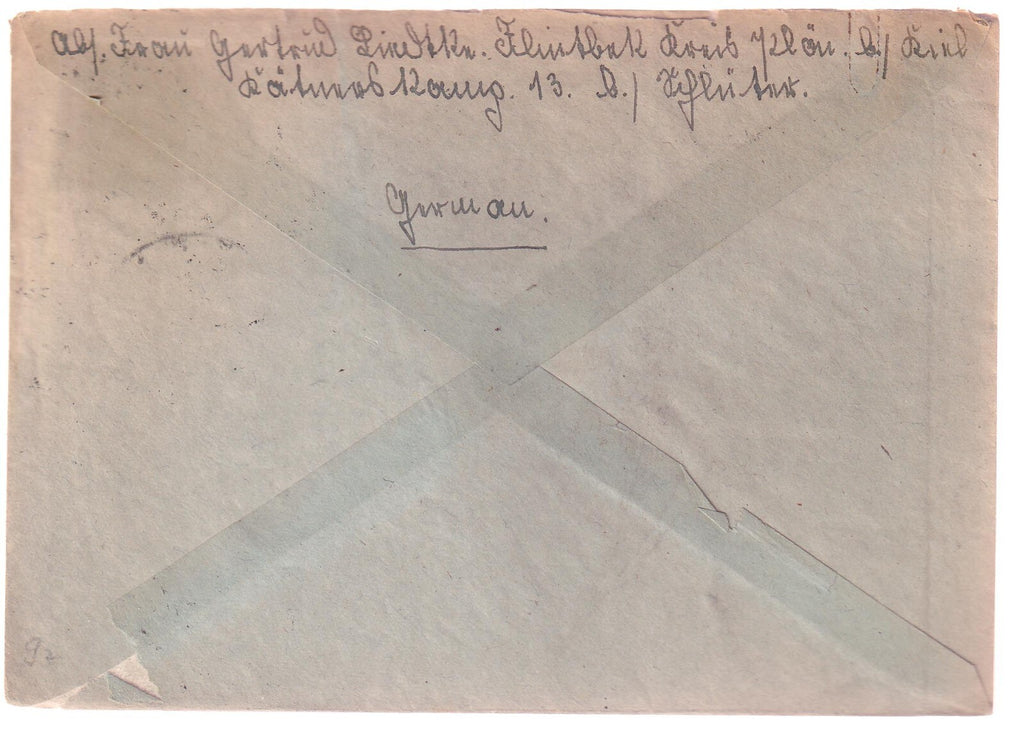 Abs. Frau Gertrud Liedtke. Flintbek Kreis Plön. b./ Kiel
Kätnerskamp. 13. b./ Schlüter.
German.